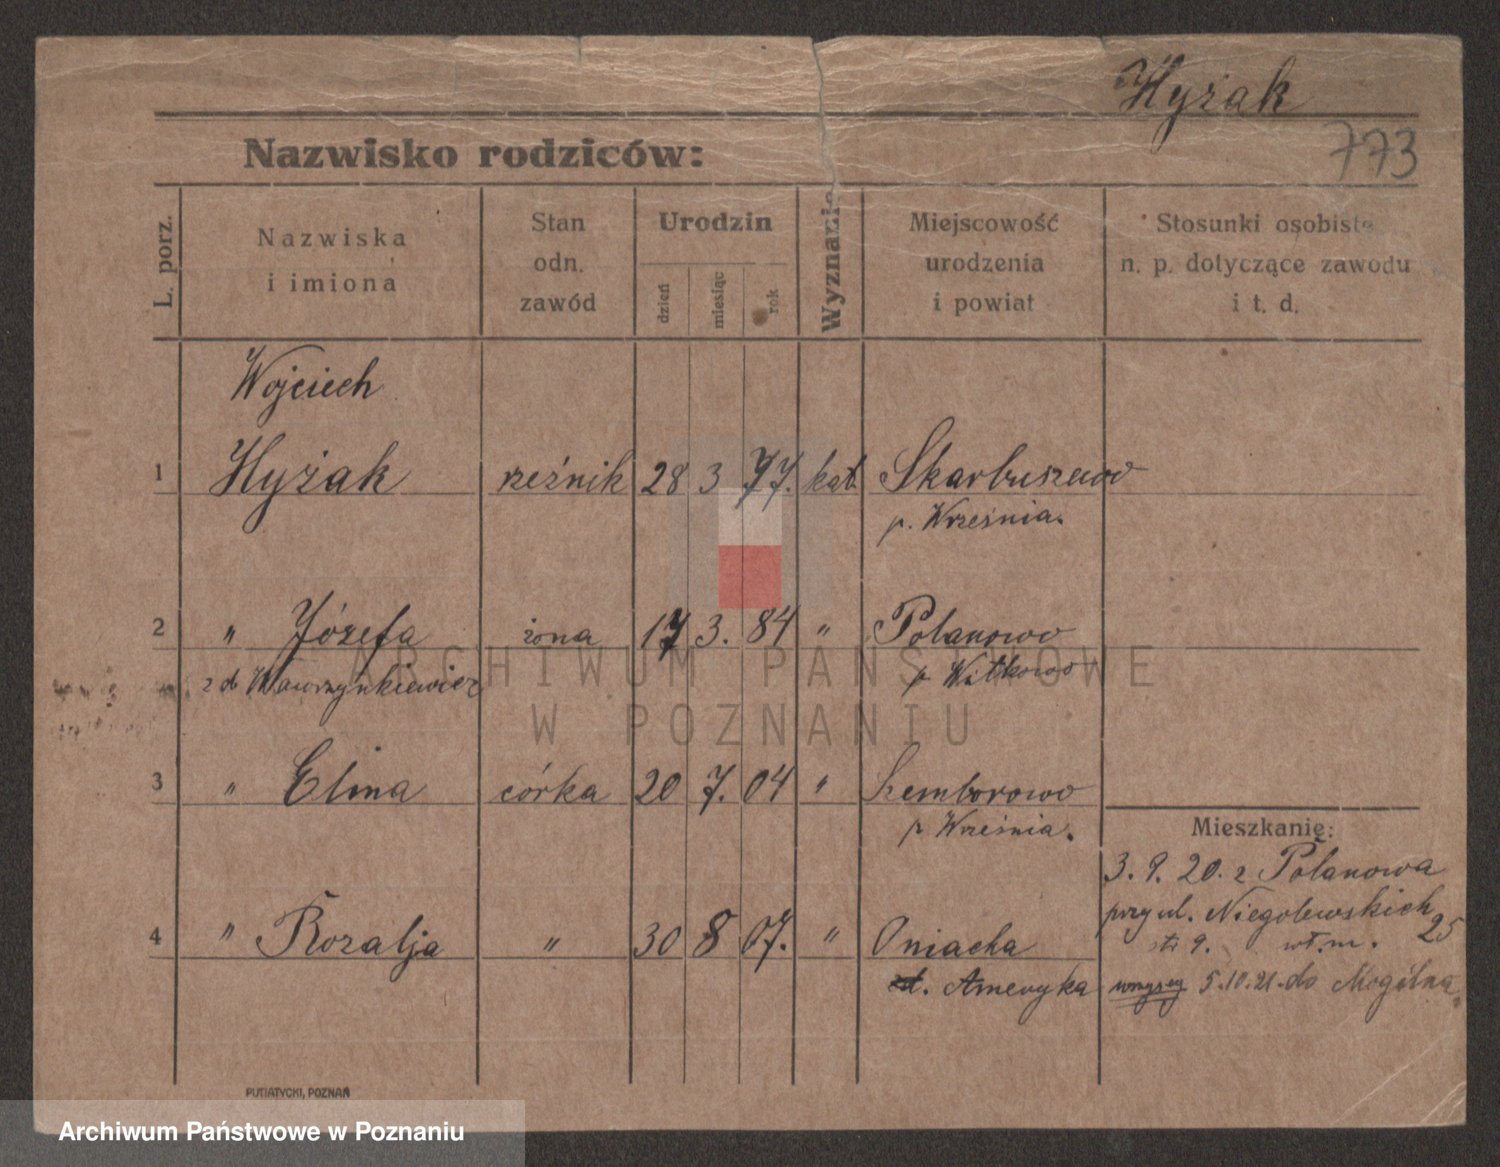 Hyżak
773
Nazwisko rodziców:
L. porz.
Nazwiska
i imiona
Stan
odn.
zawód
Urodzin
dzień
miesiąc
rok
Wyznanie
Miejscowość
urodzenia
i powiat
Stosunki osobiste
n. p. dotyczące zawodu
i t. d.
Wojciech
1 Hyżak rzeźnik 28 3 77. kat. Skarbuszewo
p. Września.
2 " Józefa żona 17 3. 84 " Polanowo
z d Wawrzynkiewicz p Witkowo
3 " Elma córka 20 7. 04 " Szemborowo
p Września.
Mieszkanie:
3. 9. 20. z Polanowa
4 " Rozalja " 30 8 07. " Oniacha
przy ul. Niegolewskich 25
9. wł. m.
Ameryka
5.10.21. do Mogilna
PUTIATYCKI, POZNAŃ
ARCHIWUM PAŃSTWOWE
W POZNANIU
Archiwum Państwowe w Poznaniu